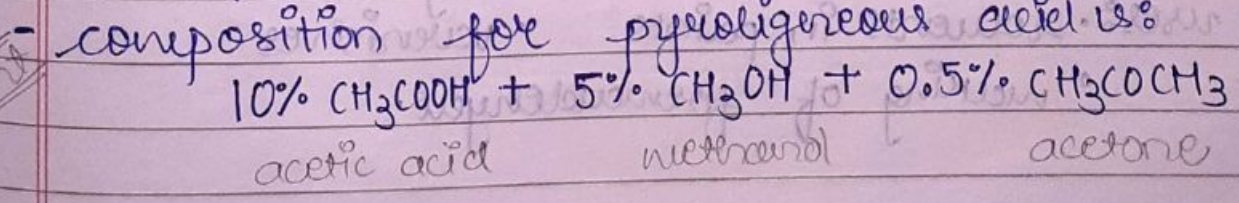 - composition for pyroligereous acid is:
10% CH₃COOH + 5% CH₃OH + 0.5% CH₃COCH₃
acetic acid methanol acetone